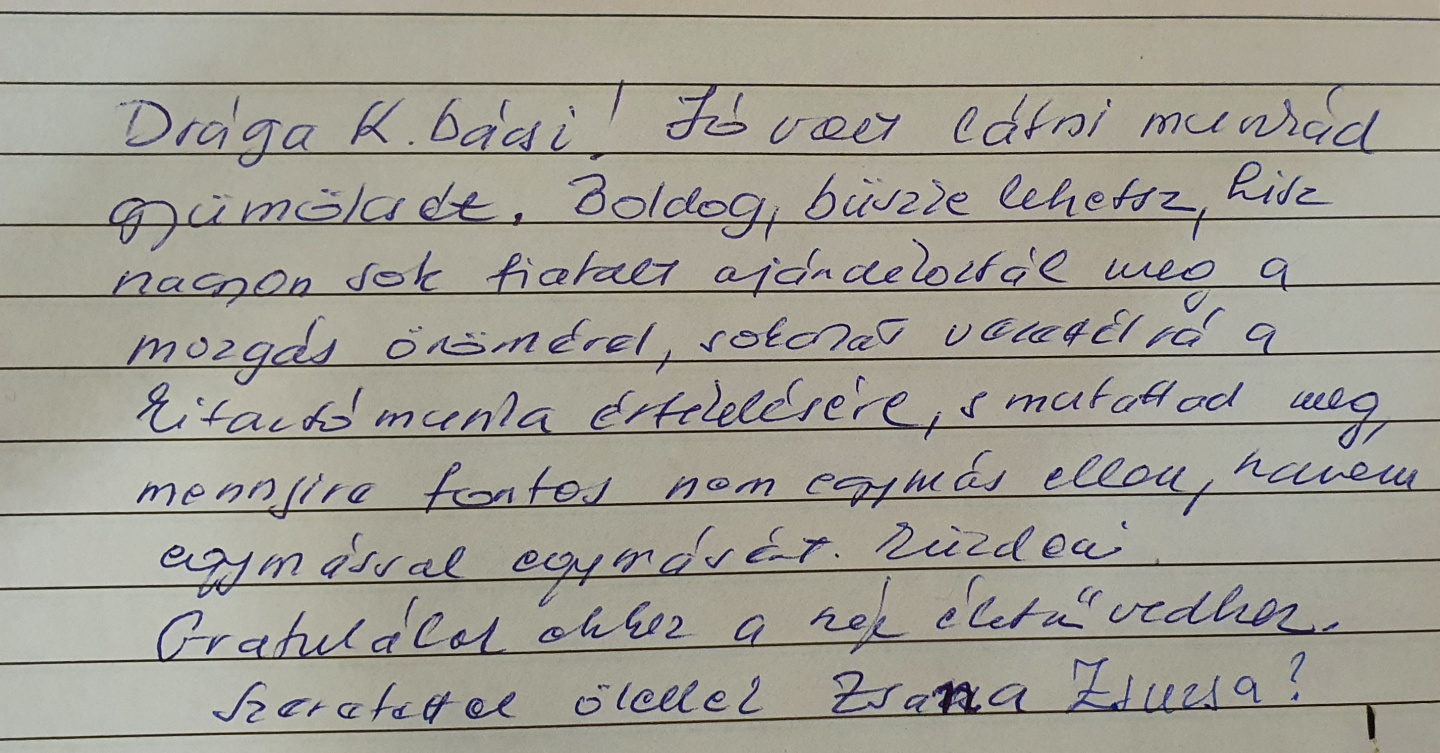 Drága K. bácsi! Jó volt látni munkád
gyümölcsét. Boldog, büszke lehetsz, hisz
nagyon sok fiatalt ajándékoztál meg a
mozgás örömével, sokakat vezettél rá a
kitartó munka értékelésére, s mutattad meg,
mennyire fontos nem egymás ellen, hanem
egymással egymásért küzdeni.
Gratulálok ehhez a szép életművedhez.
Szeretettel ölellek Zsana Zsuzsa!